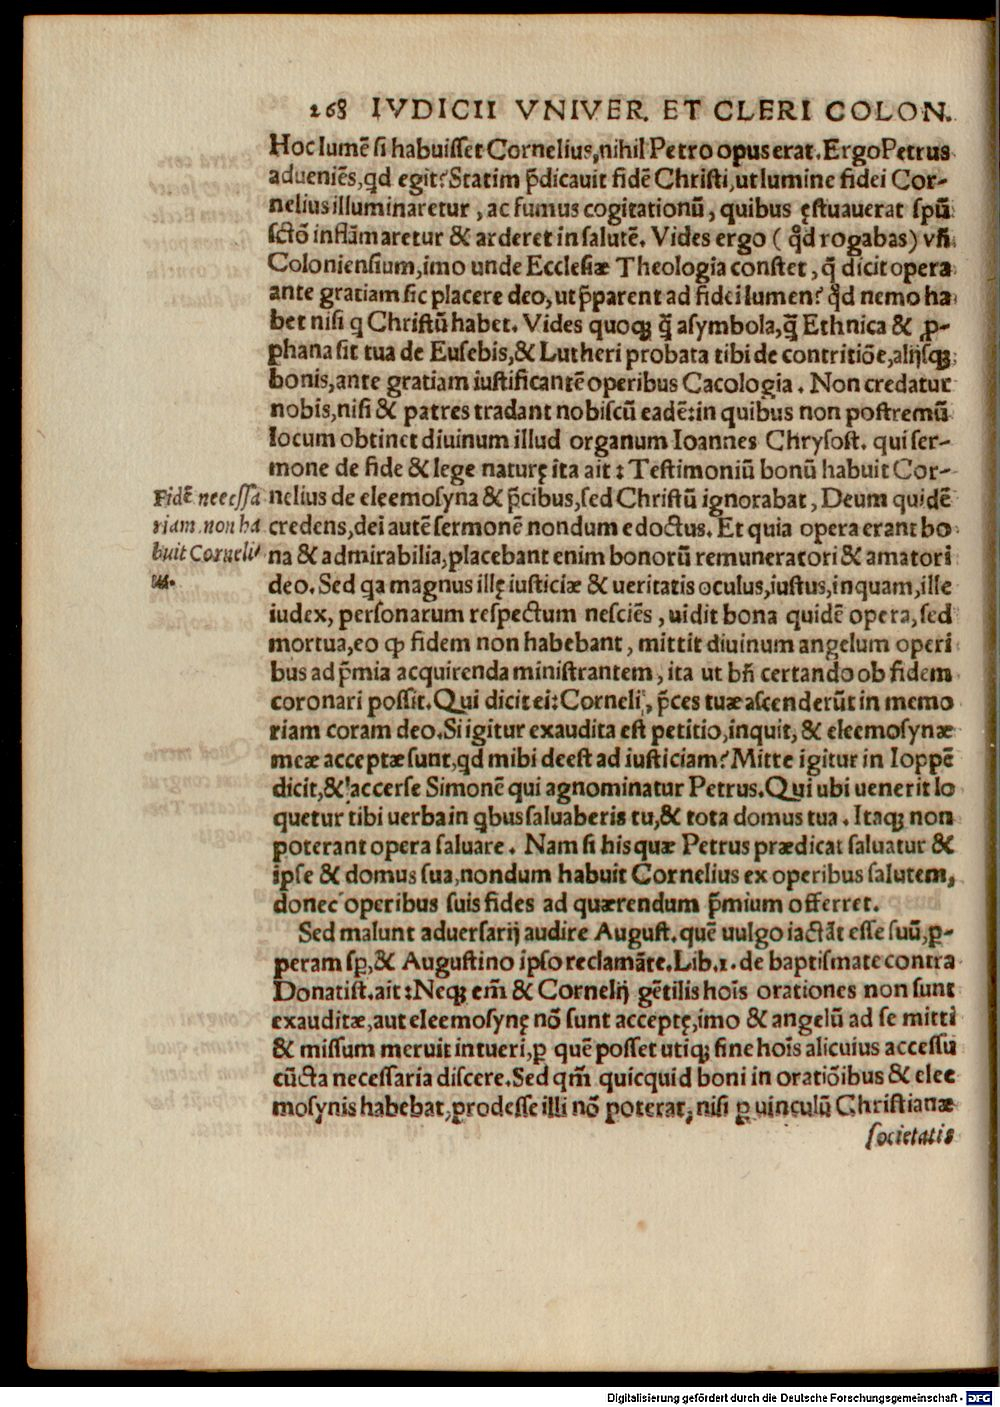 268 IVDICII VNIVER. ET CLERI COLON.
Hoc lumē si habuisset Cornelius, nihil Petro opus erat. Ergo Petrus
adueniēs, qd egit? Statim p̄dicauit fidē Christi, ut lumine fidei Cor-
nelius illuminaretur, ac fumus cogitationū, quibus ęstuauerat spū
sctō inflāmaretur & arderet in salutē. Vides ergo (qd rogabas) vn̄
Coloniensium, imo unde Ecclesiæ Theologia constet, q̄ dicit opera
ante gratiam sic placere deo, ut p̄parent ad fidei lumen? qd nemo ha
bet nisi q Christū habet. Vides quoqꝫ q̄ asymbola, q̄ Ethnica & ꝓ-
phana sit tua de Eusebis, & Lutheri probata tibi de contritiōe, alijsqꝫ
bonis, ante gratiam iustificantē operibus Cacologia. Non credatur
nobis, nisi & patres tradant nobiscū eadē: in quibus non postremū
locum obtinet diuinum illud organum Ioannes Chrysost. qui ser-
mone de fide & lege naturę ita ait: Testimoniū bonū habuit Cor-
Fidē necessa
nelius de eleemosyna & p̄cibus, sed Christū ignorabat, Deum quidē
riam non ha
credens, dei autē sermonē nondum edoctus. Et quia opera erant bo
buit Corneli
na & admirabilia, placebant enim bonorū remuneratori & amatori
us.
deo. Sed qa magnus illę iusticiæ & ueritatis oculus, iustus, inquam, ille
iudex, personarum respectum nesciēs, uidit bona quidē opera, sed
mortua, eo ꝙ fidem non habebant, mittit diuinum angelum operi
bus ad p̄mia acquirenda ministrantem, ita ut bn̄ certando ob fidem
coronari possit. Qui dicit ei: Corneli, p̄ces tuæ ascenderūt in memo
riam coram deo. Si igitur exaudita est petitio, inquit, & eleemosynæ
meæ acceptæ sunt, qd mihi deest ad iusticiam? Mitte igitur in Ioppē
dicit, & accerse Simonē qui agnominatur Petrus. Qui ubi uenerit lo
quetur tibi uerba in qbus saluaberis tu, & tota domus tua. Itaqꝫ non
poterant opera saluare. Nam si his quæ Petrus prædicat saluatur &
ipse & domus sua, nondum habuit Cornelius ex operibus salutem,
donec operibus suis fides ad quærendum p̄mium offerret.
Sed malunt aduersarij audire August. quē uulgo iactāt esse suū, ꝑ-
peram sp, & Augustino ipso reclamāte. Lib. 1. de baptismate contra
Donatist. ait: Neqꝫ em̄ & Cornelij gētilis hoīs orationes non sunt
exauditæ, aut eleemosynę nō sunt acceptę, imo & angelū ad se mitti
& missum meruit intueri, ꝑ quē posset utiqꝫ sine hoīs alicuius accessu
cūcta necessaria discere. Sed qm̄ quicquid boni in oratiōibus & elee
mosynis habebat, prodesse illi nō poterat, nisi ꝑ uinculū Christianæ
societatis
Digitalisierung gefördert durch die Deutsche Forschungsgemeinschaft - DFG